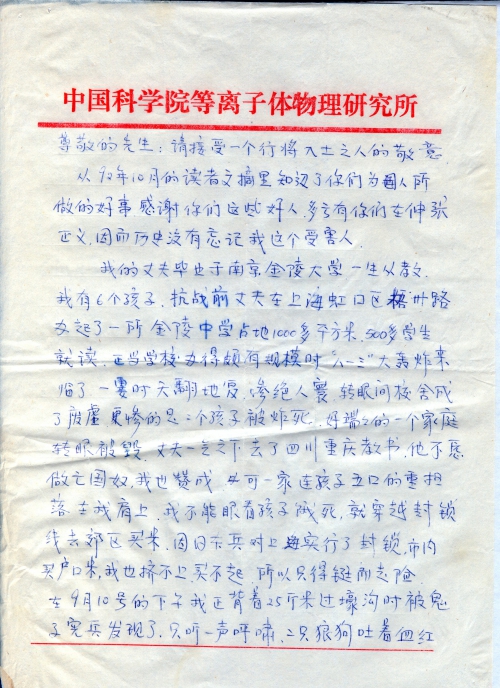 中国科学院等离子体物理研究所
尊敬的先生：请接受一个行将入土之人的敬意
从92年10月的读者文摘里知道了你们为国人所
做的好事感谢你们这些好人，多亏有你们在伸张
正义，因而历史没有忘记我这个受害人．
我的丈夫毕业于南京金陵大学一生从教．
我有6个孩子．抗战前丈夫在上海虹口区 州路
办起了一所金陵中学占地1000多平方米，500多学生
就读．正当学校办得颇有规模时"八一三"大轰炸来
临了一霎时天翻地复，惨绝人寰 转眼间校舍成
了废虚更惨的是二个孩子被炸死．好端端的一个家庭
转眼被毁．丈夫一气之下去了四川重庆教书，他不愿
做亡国奴，我也赞成 可一家连孩子五口的重担
落在我肩上，我不能眼看孩子饿死，就穿越封锁
线去郊区买米．因日本兵对上海实行了封锁，市内
买户口米，我也挤不上买不起．所以只得铤而走险．
在9月10号的下午我正背着25斤米过壕沟时被鬼
子宪兵发现了．只听一声呼啸，二只狼狗吐着血红